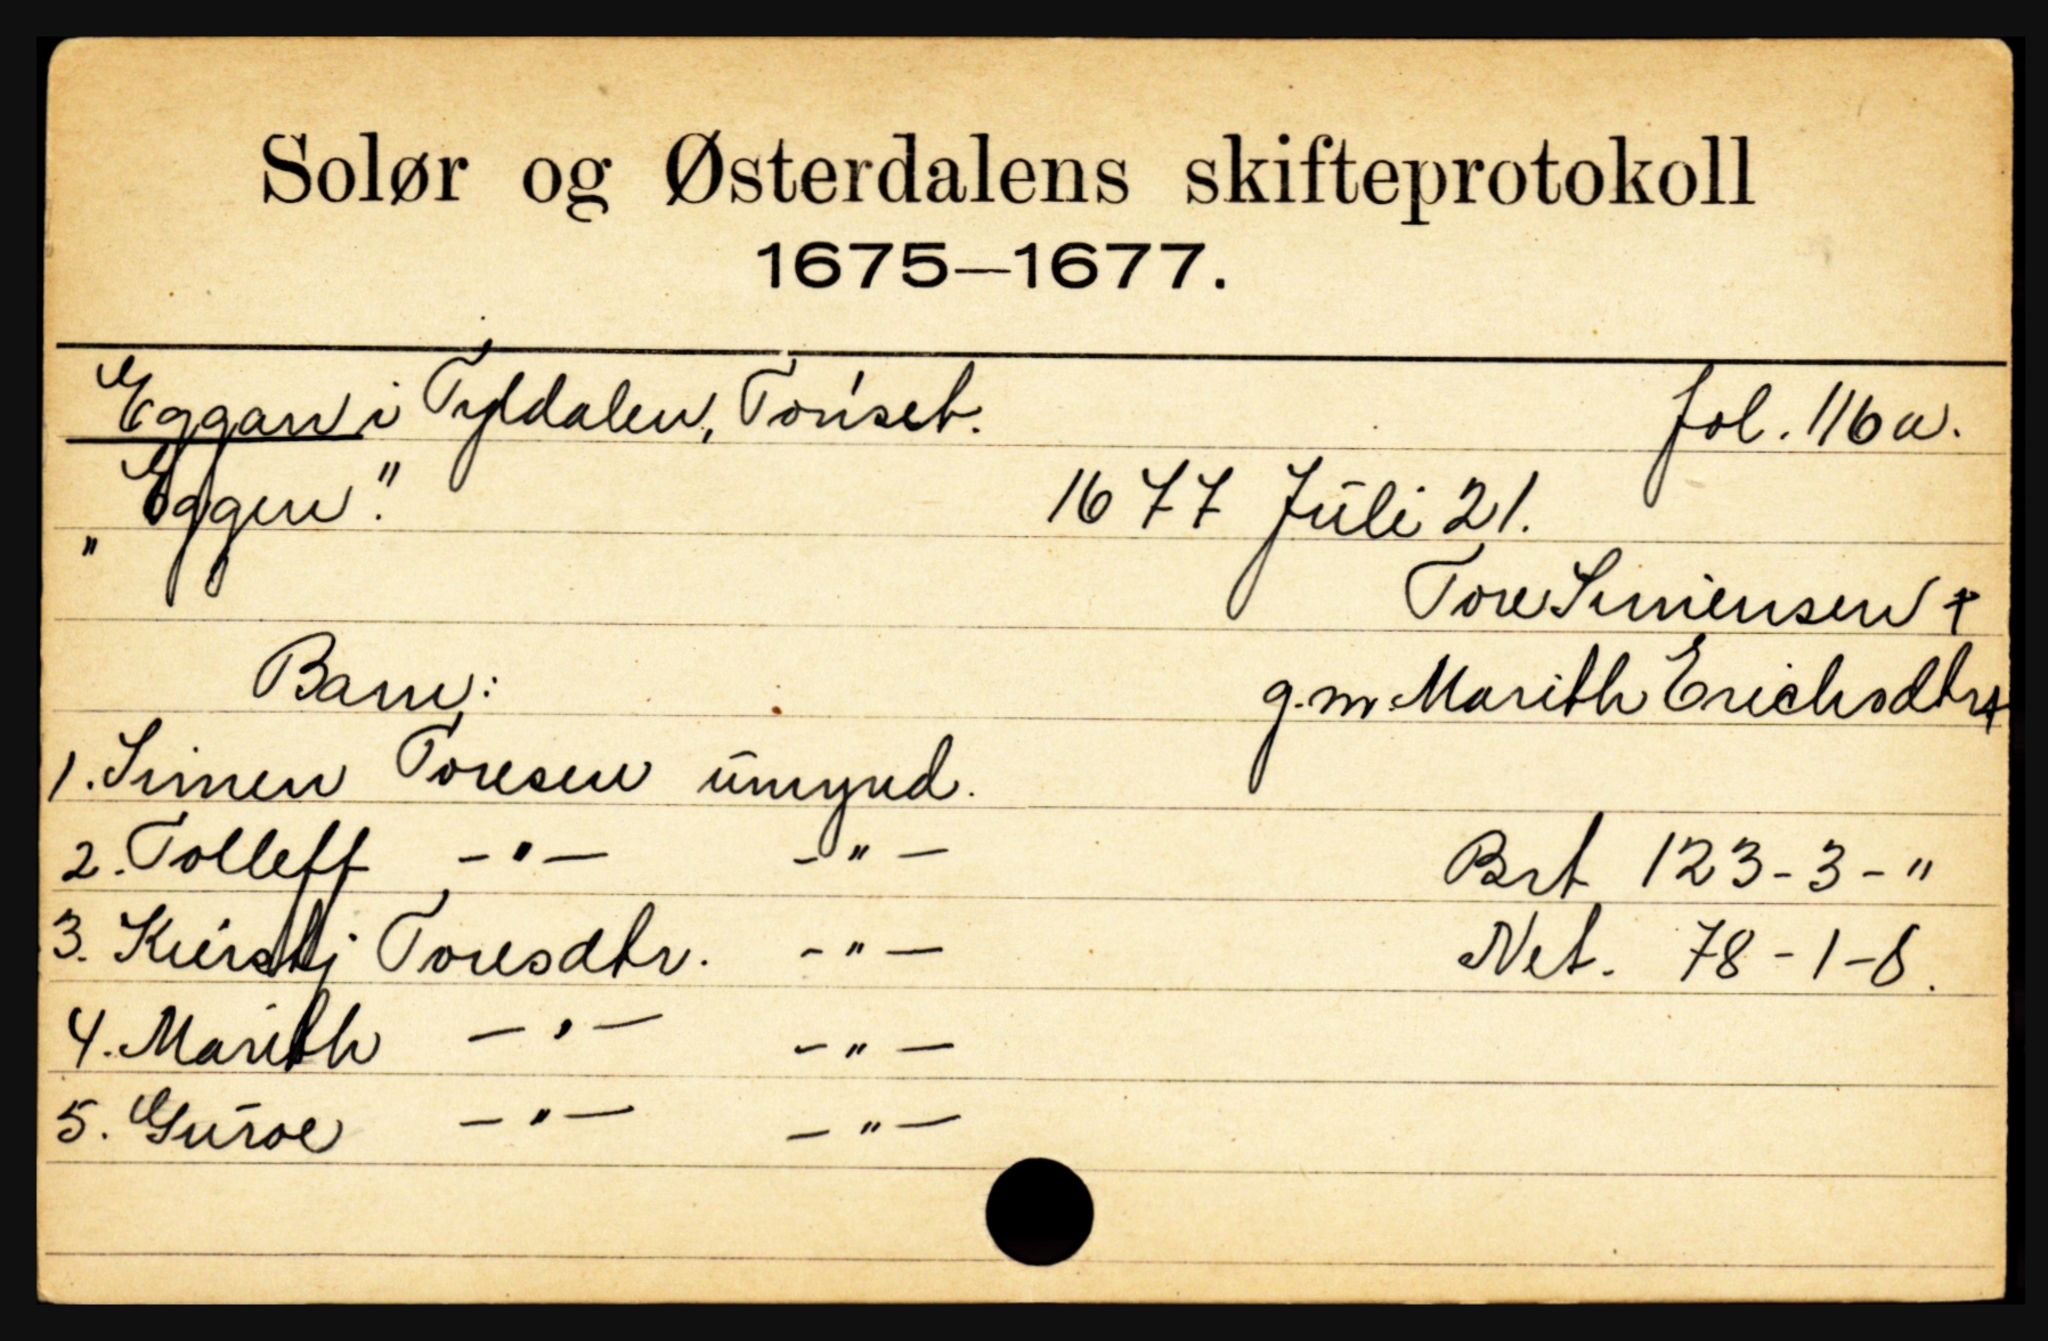 Solør og Østerdalens skifteprotokoll
1675—1677.
Eggan i Tyldalen, Tønset. fol. 116 a.
„Eggen". 1677 Juli 21.
Tore Simensen +
Barn: g.m. Marith Erichsdtr +
1. Simen Toresen umynd.
2. Tolleff -"- -"- Brt 123-3-"
3. Kiersti Toresdtr. -"- Net. 78-1-8.
4. Marith -"- -"-
5. Guroe -"- -"-